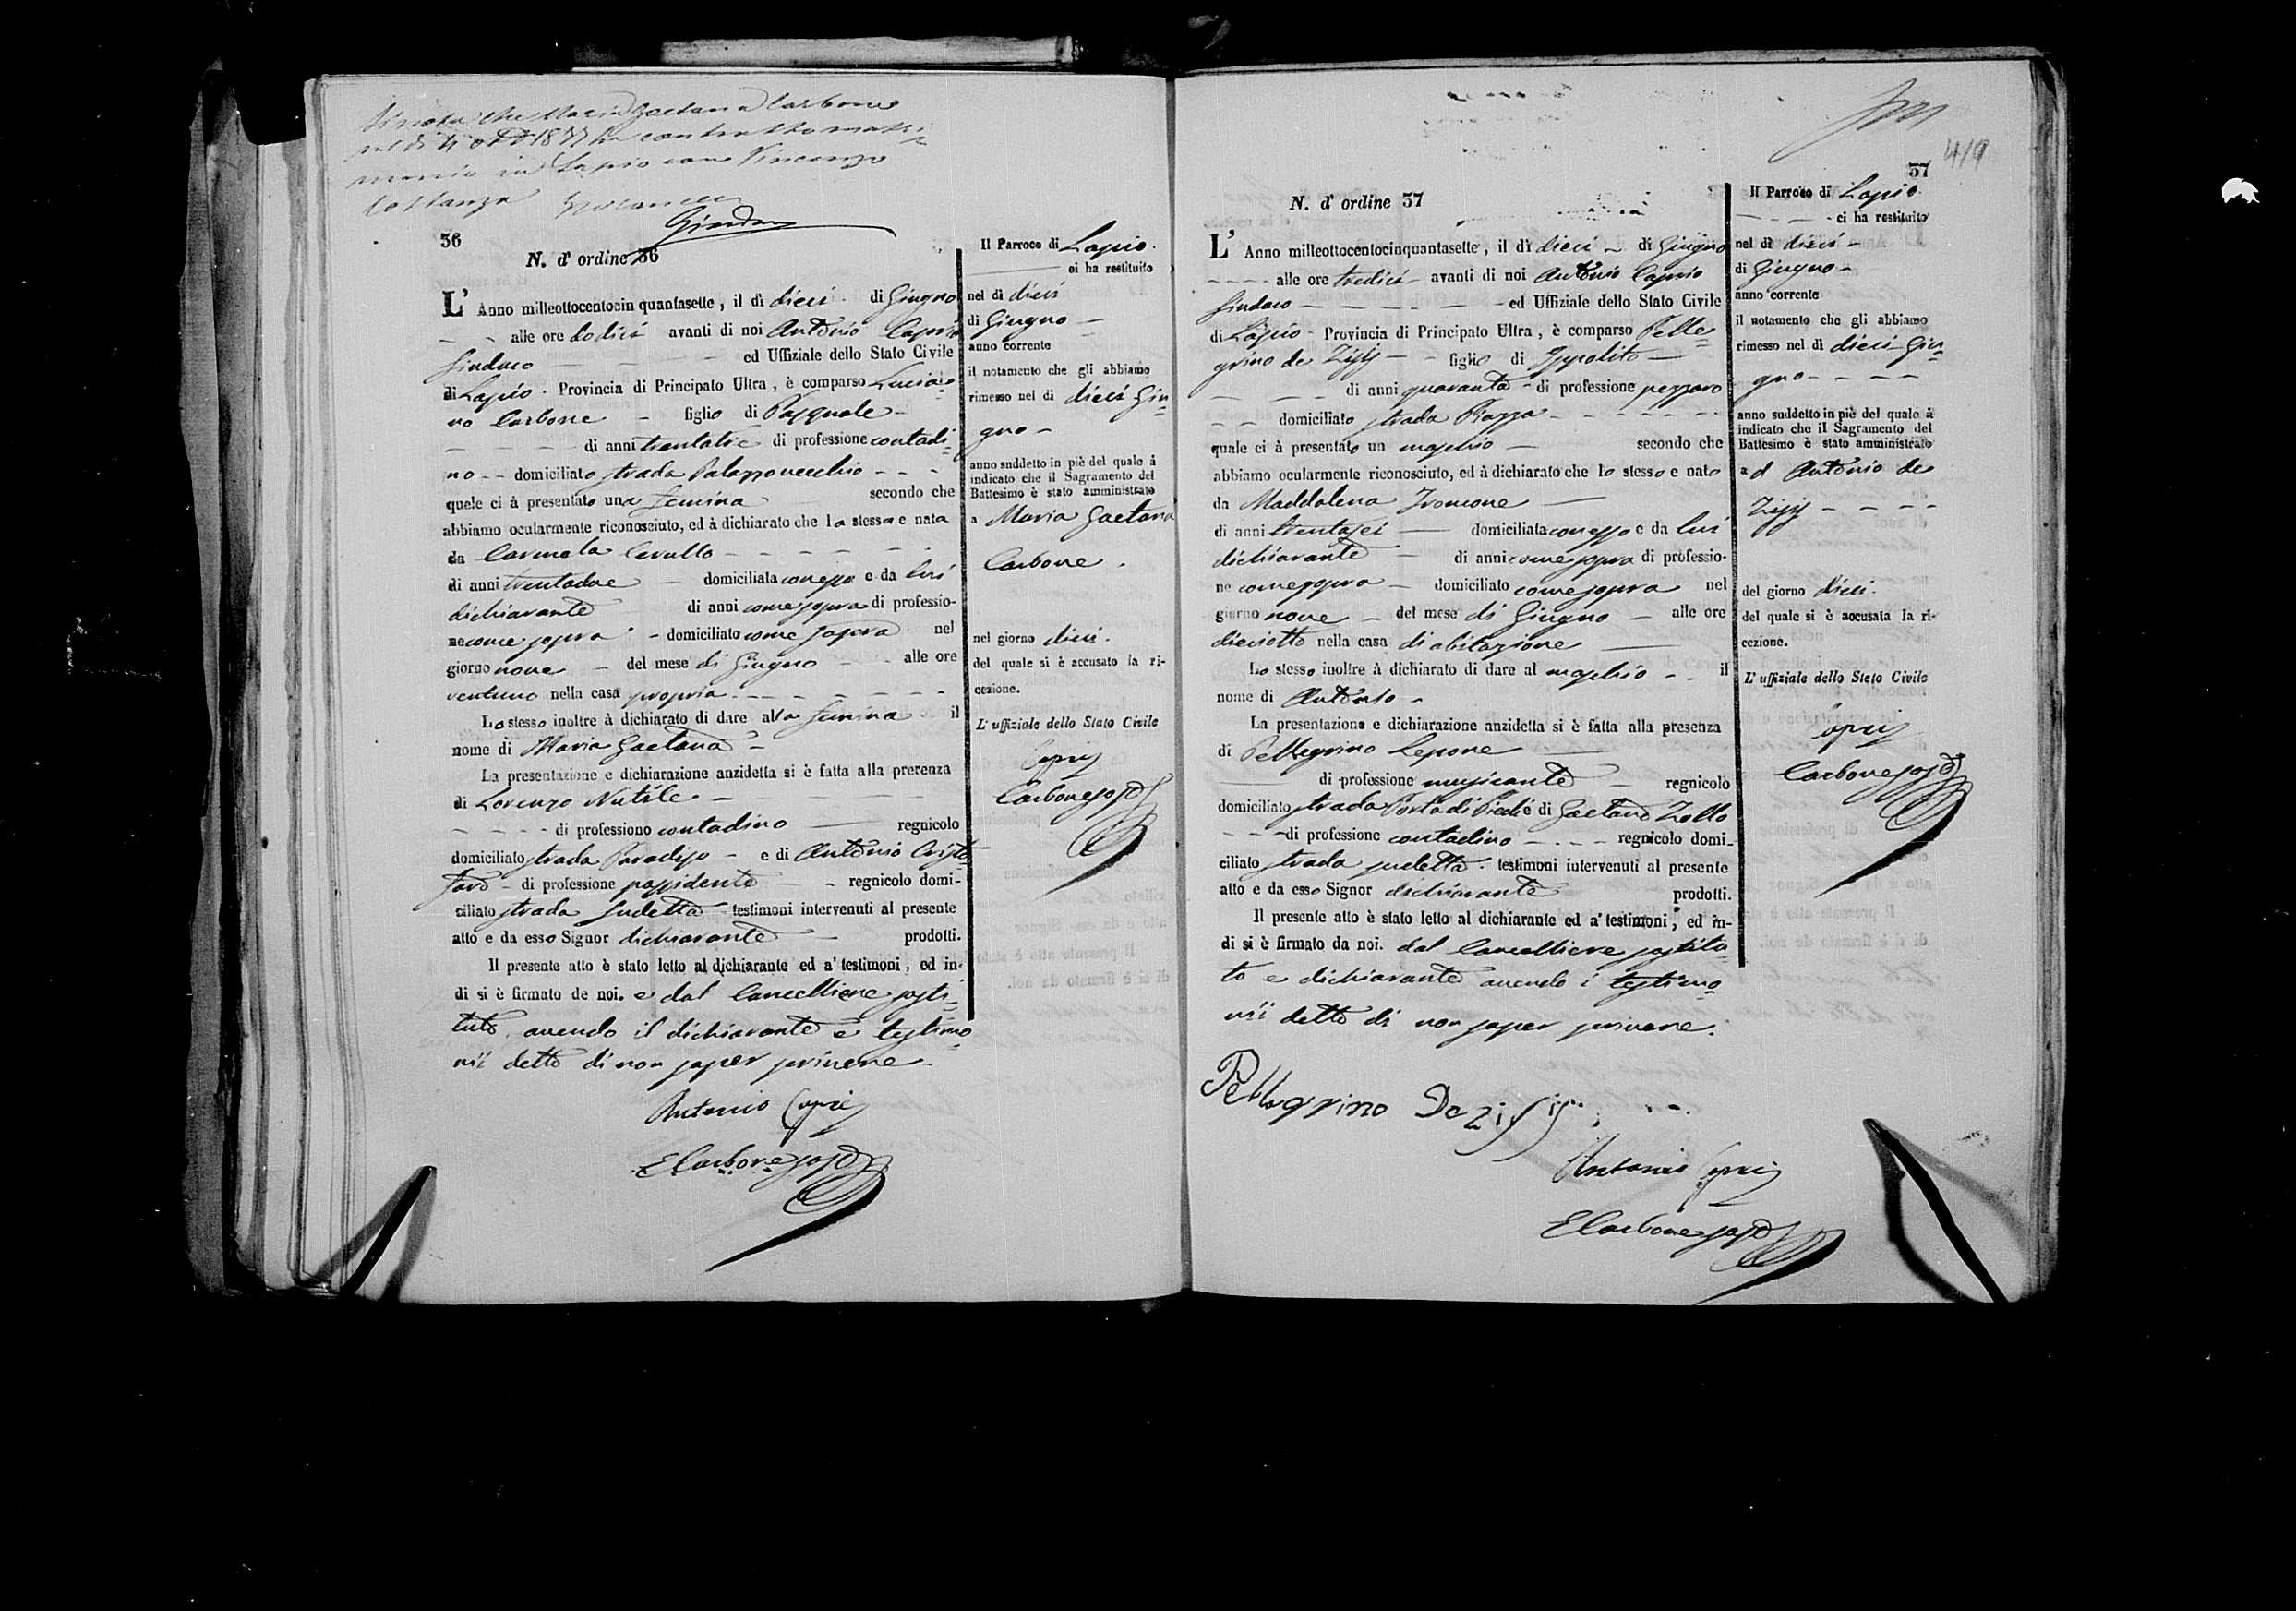 che Maria Gaetana Carbone
1877 ha contratto matri-
monio in Lapio con Vincenzo
Costanza
36
N. d' ordine 36
L' Anno milleottocentocinquantasette, il dì dieci di Giugno
alle ore dodici avanti di noi Antonio Caprio
Sindaco ed Uffiziale dello Stato Civile
di Lapio. Provincia di Principato Ultra, è comparso Lucia-
no Carbone figlio di Pasquale
di anni trentatre di professione contadi-
no domiciliato strada Palazzovecchio
quale ci à presentato una femina secondo che
abbiamo ocularmente riconosciuto, ed à dichiarato che la stessa e nata
da Carmela Cerullo
di anni trentadue domiciliata con esso e da lui
dichiarante di anni come sopra di professio-
ne come sopra domiciliato come sopra nel
giorno nove del mese di Giugno alle ore
ventuno nella casa propria
Lo stesso inoltre à dichiarato di dare alla femina il
nome di Maria Gaetana
La presentazione e dichiarazione anzidetta si è fatta alla prerenza
di Lorenzo Nutile
di professiono contadino regnicolo
domiciliato strada Paradiso e di Antonio Cristo
faro di professione possidente regnicolo domi-
ciliato strada sudetta testimoni intervenuti al presente
atto e da esso Signor dichiarante prodotti.
Il presente atto è stato letto al dichiarante ed a' testimoni, ed in-
di si è firmato de noi. e dal Cancelliere sosti-
tuto, avendo il dichiarante e testimo-
nii detto di non saper scrivere.
Antonio Caprio
E Carbone sosto
Il Parroco di Lapio.
ci ha restituito
nel dì dieci
di Giugno
anno corrente
il notamento che gli abbiamo
rimesso nel di dieci Giu-
gno
anno suddetto in piè del quale à
indicato che il Sagramento del
Battesimo è stato amministrato
a Maria Gaetana
Carbone.
nel giorno dieci.
del quale si è accusato la ri-
cezione.
L' uffiziale dello Stato Civile
Caprio
Carbone sosto
419
37
N. d' ordine 37
L' Anno milleottocentocinquantasette, il dì dieci di Giugno
alle ore tredici avanti di noi Antonio Caprio
Sindaco ed Uffiziale dello Stato Civile
di Lapio Provincia di Principato Ultra, è comparso Pelle-
grino de Zisij figlio di Ippolito
di anni quaranta di professione pezzaro
domiciliato strada Piazza
quale ci à presentato un maschio secondo che
abbiamo ocularmente riconosciuto, ed à dichiarato che lo stesso e nato
da Maddalena Troncone
di anni trentasei domiciliata con esso e da lui
dichiarante di anni come sopra di professio-
ne come sopra domiciliato come sopra nel
giorno nove del mese di Giugno alle ore
dieciotto nella casa di abitazione
Lo stesso inoltre à dichiarato di dare al maschio il
nome di Antonio
La presentazione e dichiarazione anzidetta si è fatta alla presenza
di Pellegrino Lepore
di professione musicante regnicolo
domiciliato strada Porta di Piedi e di Gaetano Zollo
di professione contadino regnicolo domi-
ciliato strada sudetta. testimoni intervenuti al presente
atto e da esso Signor dichiarante prodotti.
Il presente atto è stato letto al dichiarante ed a' testimoni, ed in-
di si è firmato da noi. dal Cancelliere sostitu-
to e dichiarante avendo i testimo-
nii detto di non saper scrivere.
Pellegrino De Zisij
Antonio Caprio
E Carbone sosto
Il Parroco di Lapio
ci ha restituito
nel dì dieci
di Giugno
anno corrente
il notamento che gli abbiamo
rimesso nel di dieci Giu-
gno
anno suddetto in piè del quale à
indicato che il Sagramento del
Battesimo è stato amministrato
ad Antonio de
Zisij
del giorno dieci.
del quale si è accusata la ri-
cezione.
L' uffiziale dello Stato Civile
Caprio
Carbone sosto